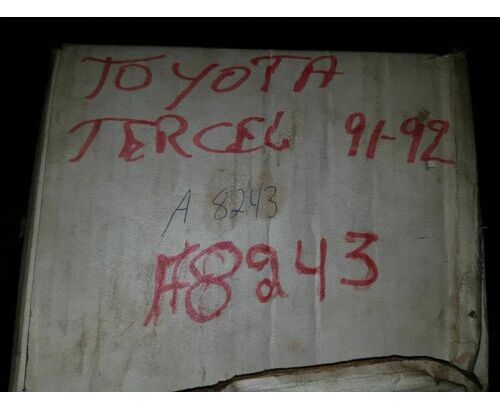 TOYOTA
TERCEL 91-92
A 8243
A8243